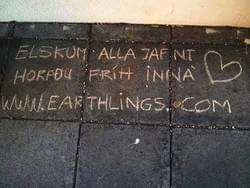 ELSKUM ALLA JAFNT
HORFÐU FRÍTT INNÁ
WWW.EARTHLINGS.COM